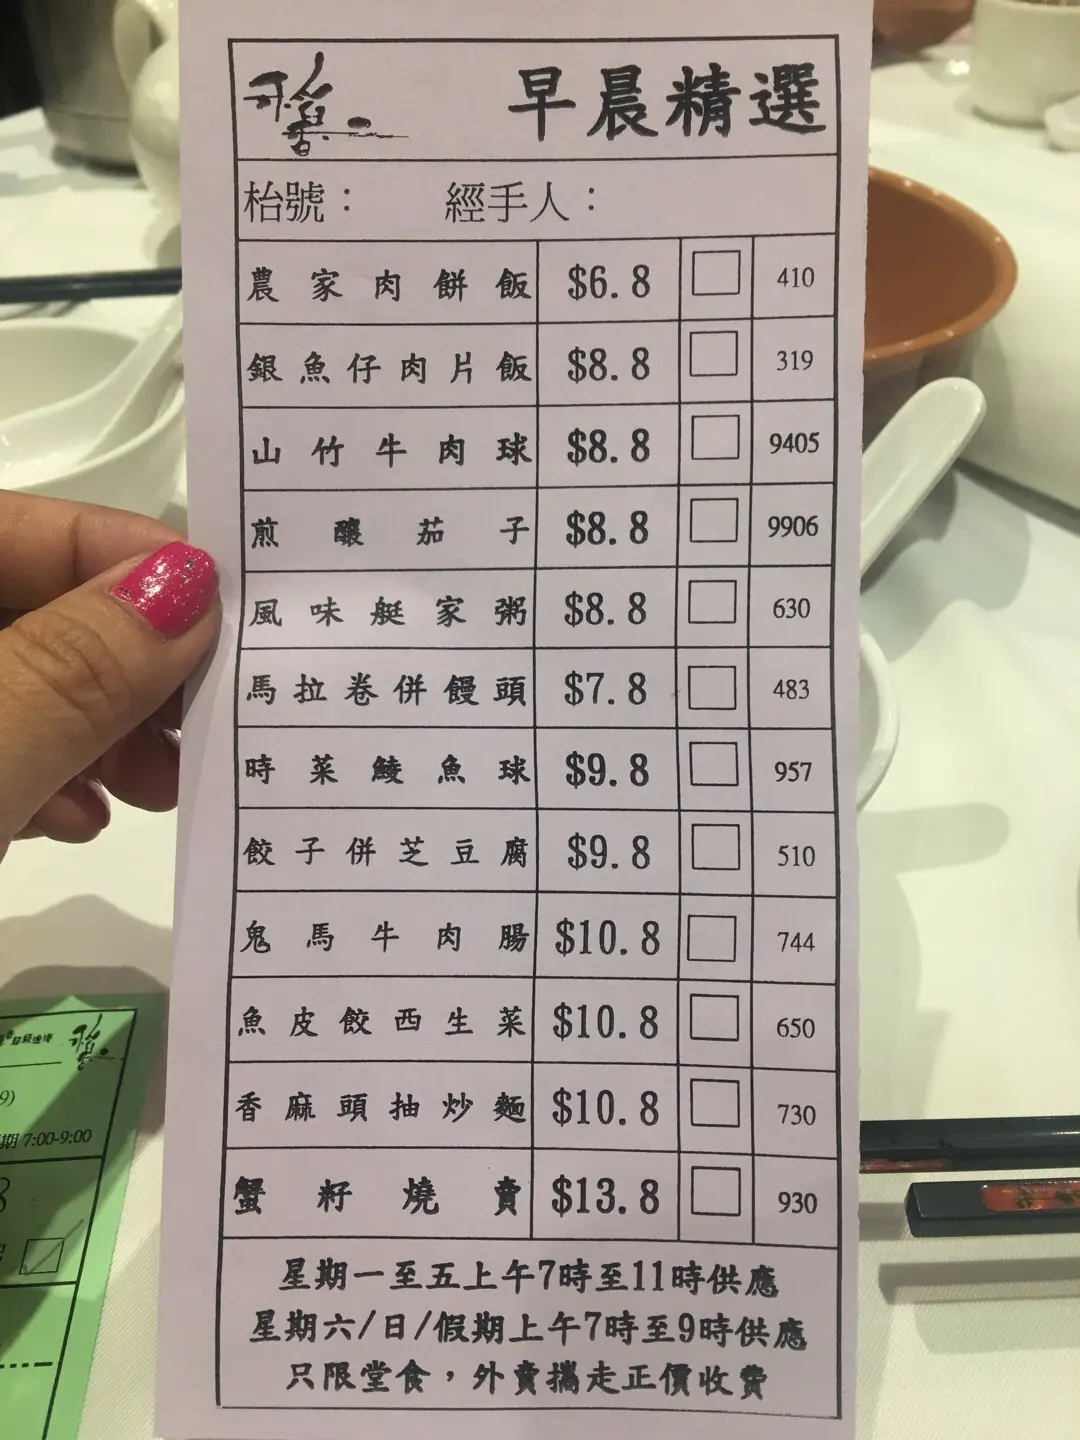 早晨精選
枱號： 經手人：
農家肉餅飯 $6.8 410
銀魚仔肉片飯 $8.8 319
山竹牛肉球 $8.8 9405
煎釀茄子 $8.8 9906
風味艇家粥 $8.8 630
馬拉卷併饅頭 $7.8 483
時菜鯪魚球 $9.8 957
餃子併芝豆腐 $9.8 510
鬼馬牛肉腸 $10.8 744
魚皮餃西生菜 $10.8 650
香麻頭抽炒麵 $10.8 730
蟹籽燒賣 $13.8 930
星期一至五上午7時至11時供應
星期六/日/假期上午7時至9時供應
只限堂食，外賣攜走正價收費
9)
期 7:00-9:00
8